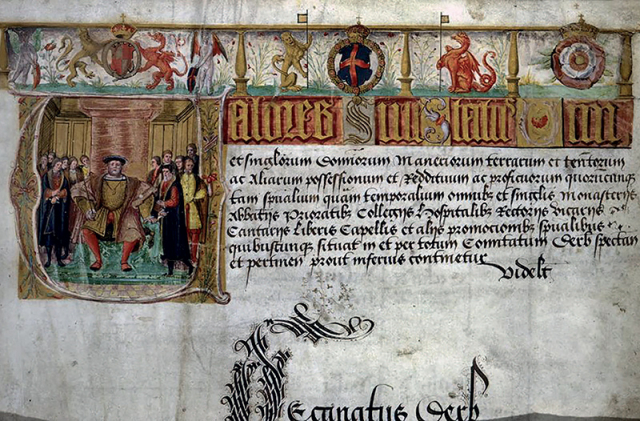 Valores
et singlorum Domiorum Maneriorum terrarum et tentorum
ac Aliarum possessionum et Reddituum ac proficiorum quorumcunq
tam spualium quam temporalium omnibus et singulis Monasterijs
Abbathijs Prioratibus Collegijs Hospitalibus Rectorijs Vicarijs
Cantarijs Liberis Capellis et alijs promocionibus spualibus
quibuscunq situat in et per totum Comitatum Derb spectan
et pertinen prout inferius continetur
Videlt
Decanatus Derb